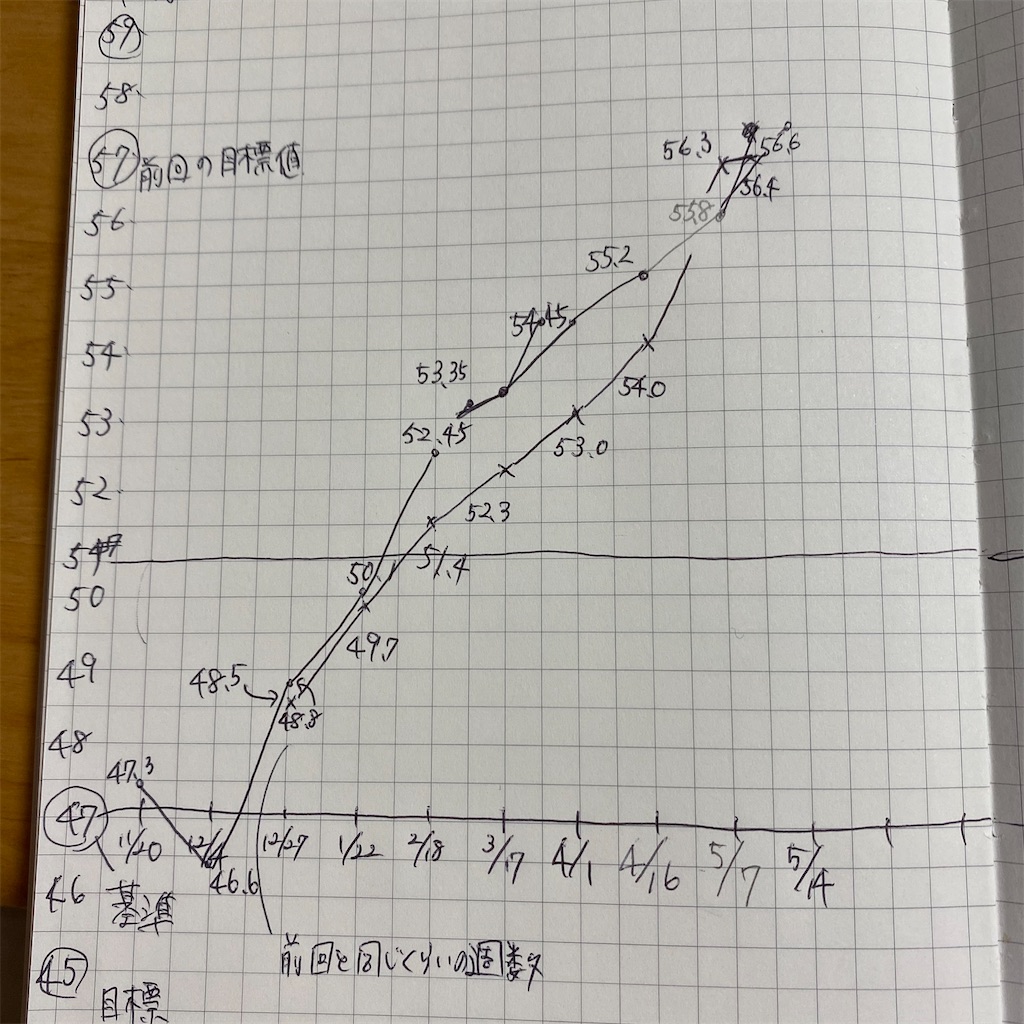 59
58
57 前回の目標値
56.3
56.6
56.4
56
55.8
55.2
55
54.45
54
53.35
54.0
53
52.45
53.0
52
52.3
51.4
50
50.1
49.7
49
48.5
48.8
48
47.3
47
11/20 12/4 12/27 1/22 2/18 3/17 4/1 4/16 5/7 5/14
46.6
46 基準
前回と同じくらいの週数
45
目標